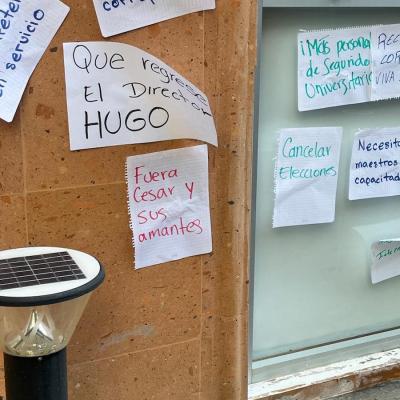 en servicio
Que regrese
El Director
HUGO
Fuera
Cesar y
sus
amantes
¡Más personal
de Seguridad
Universitaria
VIVA
Cancelar
Elecciones
Necesito
maestros
capacitado